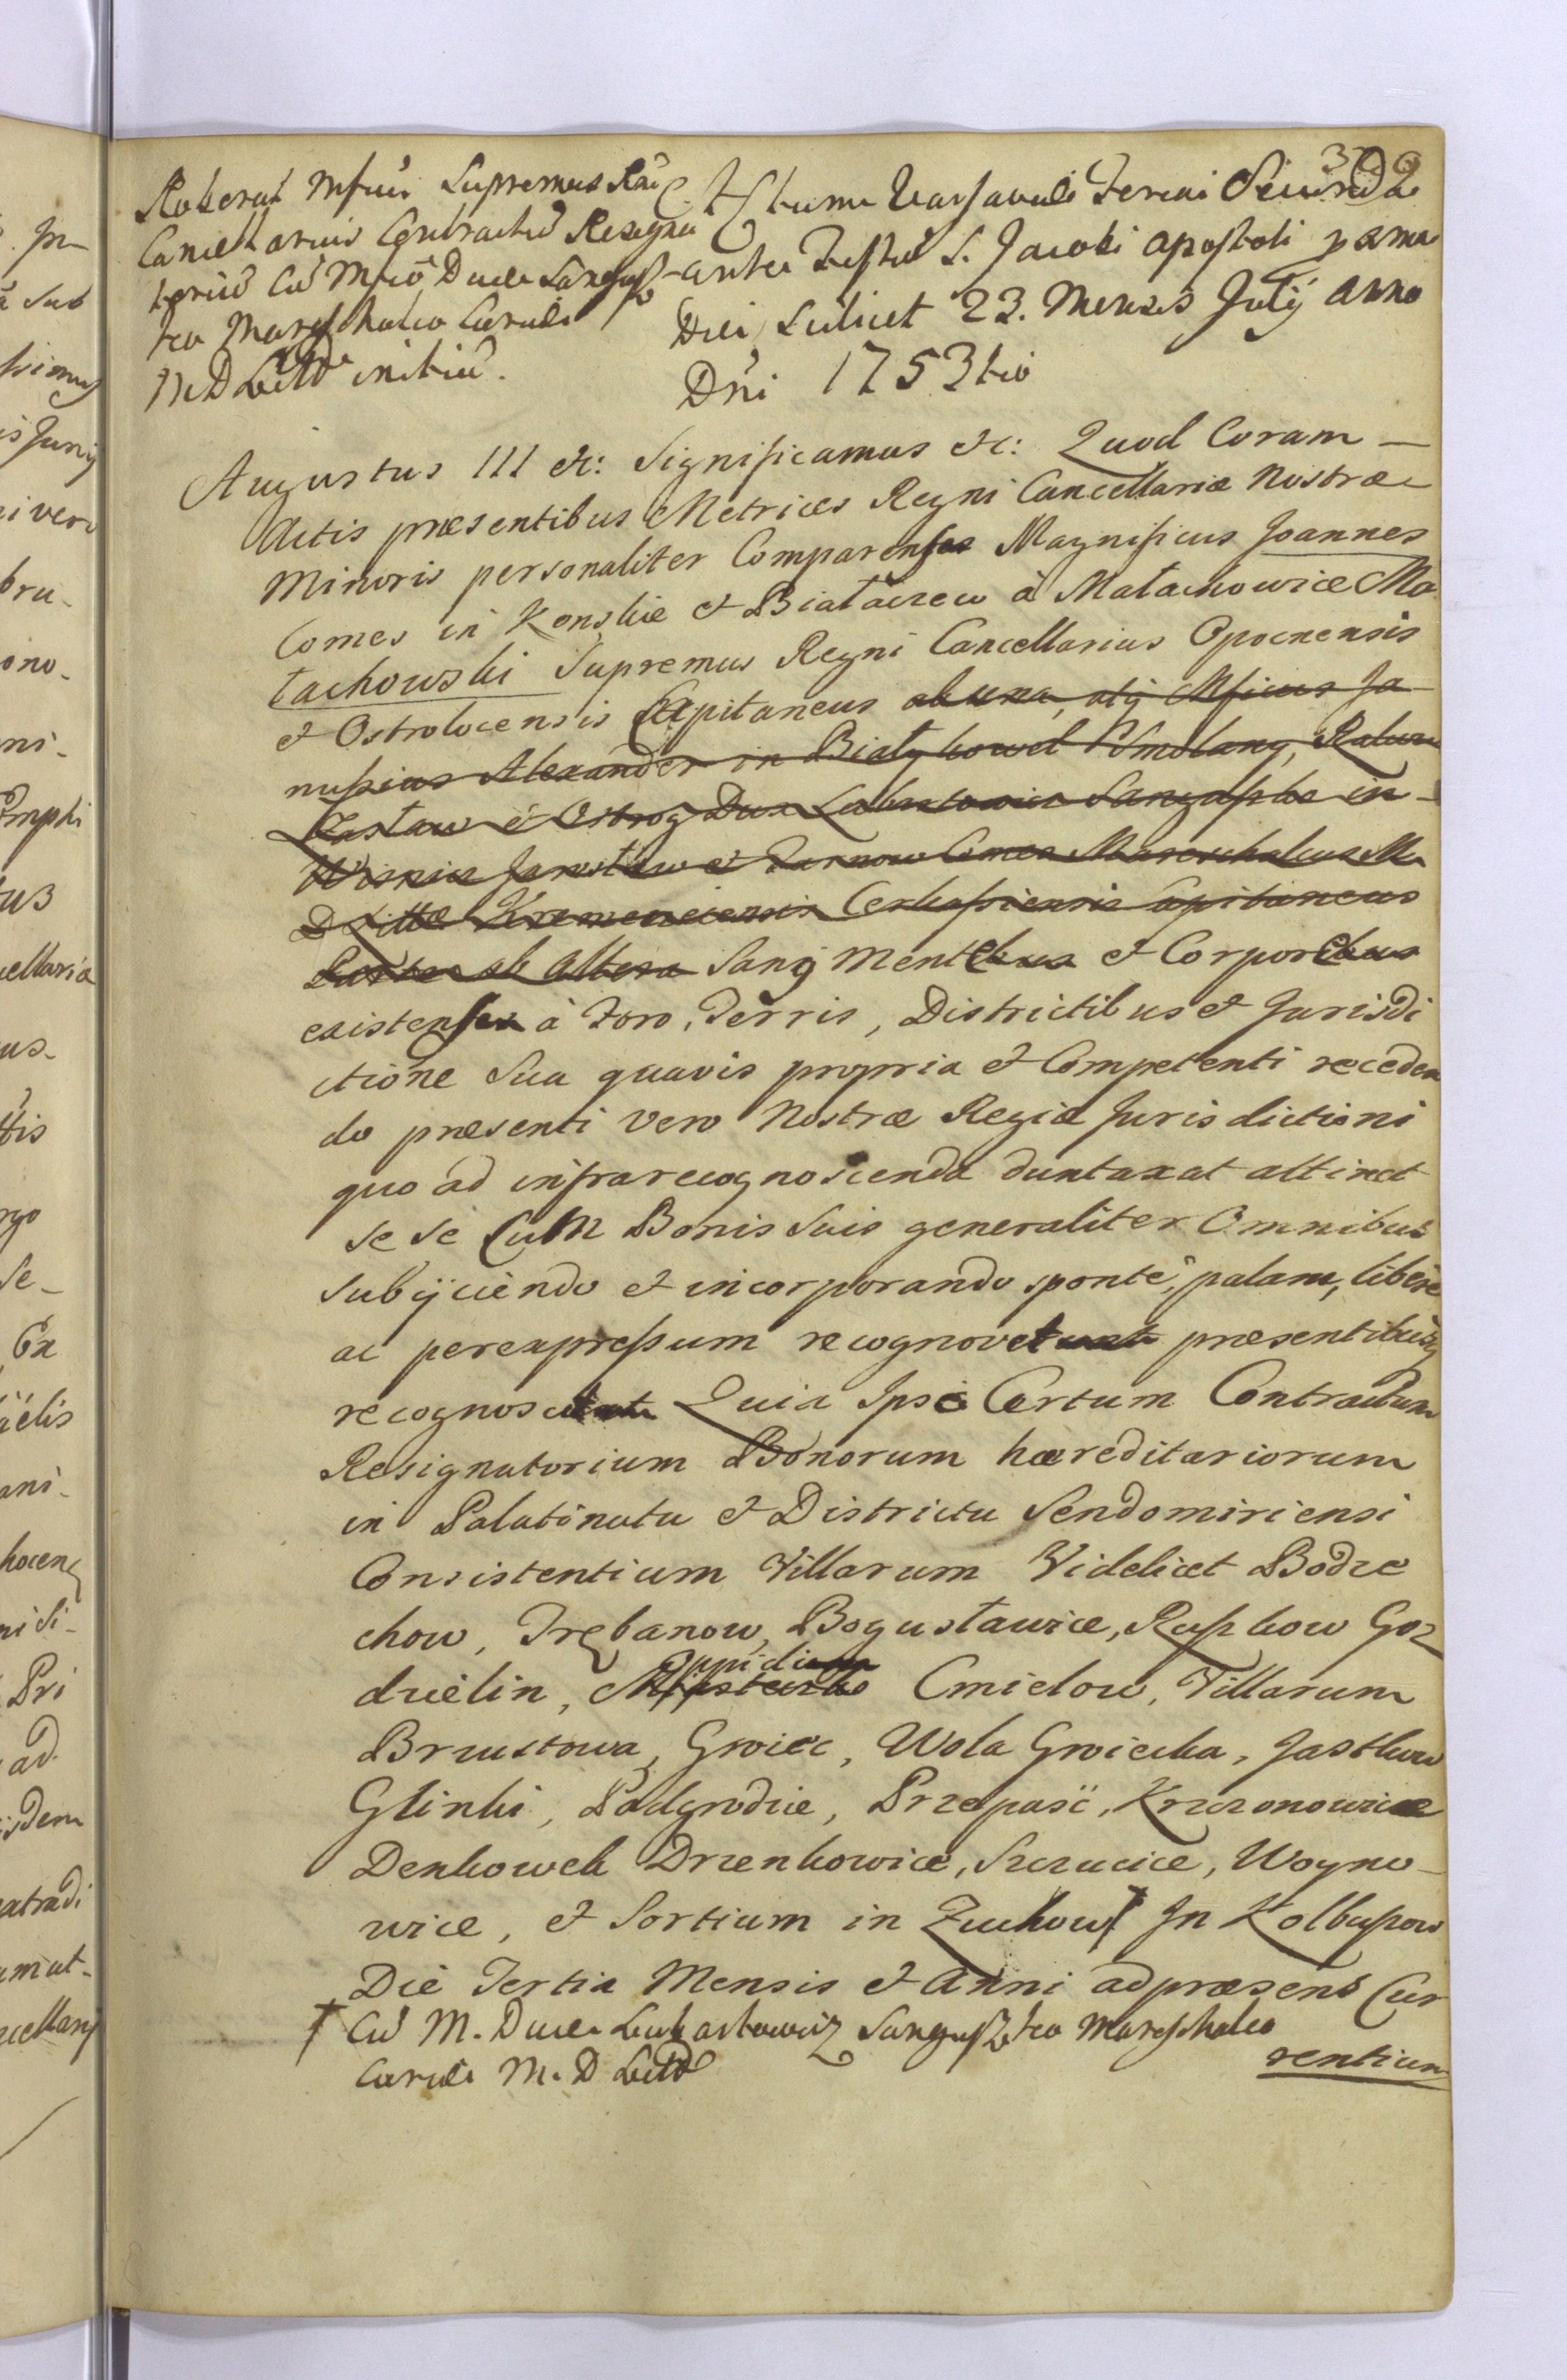 Roborat Mficus Supremus Rni
Cancellarius Contractũ Resigna
toriũ Cũ Mfico Duce Sangusz
ko Mareschalco Curiali
M D Littɫɫ initiũ.
Actum Varsaviæ Feria Secunda
ante Festũ S. Jacobi Apostoli proxima
Die scilicet 23. Mensis Julij Anno
Dni 1753tio
Augustus III etc: Significamus etc: Quod Coram
Actis præsentibus Metrices Regni Cancellariæ Nostræ
Minoris personaliter Comparens Magnificus Joannes
Comes in Konskie et Białaczew à Małachowice Ma
łachowski Supremus Regni Cancellarius Opocnensis
et Ostrolocensis Capitaneus ab una, atq Mficus Ja
nussius Alexander in Biały Kowel Smolany, Raków
Zasław et Ostrog Dux Lubartowicz Sanguszko in
Wisnicz Jarosław et Tarnow Comes Mareschalcus M.
D Litt Kremenecensis Cerkassiensis Capitaneus
Parte ab altera Sanus Mente et Corpore
existens à Foro, Terris, Districtibus et Jurisdi
ctione sua quavis propria et Competenti receden
do præsenti vero Nostræ Regiæ Jurisdictioni
quo ad infrarecognoscenda duntaxat attinet
se se Cum Bonis suis generaliter Omnibus
subijciendo et incorporando sponte, palam, libere
ac per expressum recognovit præsentibusq
recognoscit Quia Ipse Certum Contractum
Resignatorium Bonorum hæreditariorum
in Palatinatu et Districtu Sendomiriensi
Consistentium Villarum Videlicet Bodze
chow, Trębanow, Bogusławice, Ruszkow Goz
dzielin, Oppidi Miasteczko Cmielow, Villarum
Brzustowa, Groiec, Wola Groiecka, Jastkow
Glinki, Podgrodzie, Przepaść, Krzczonowice
Denkowek Drzenkowice, Szczucice, Woyno-
wice, et Sortium in Zuchow † In Kolbuszow
Die Tertia Mensis et Anni ad præsens Cur
† Cũ M. Duce Lubartowicz Sanguszko Mareschalco
Curiali M. D Litt
rentium